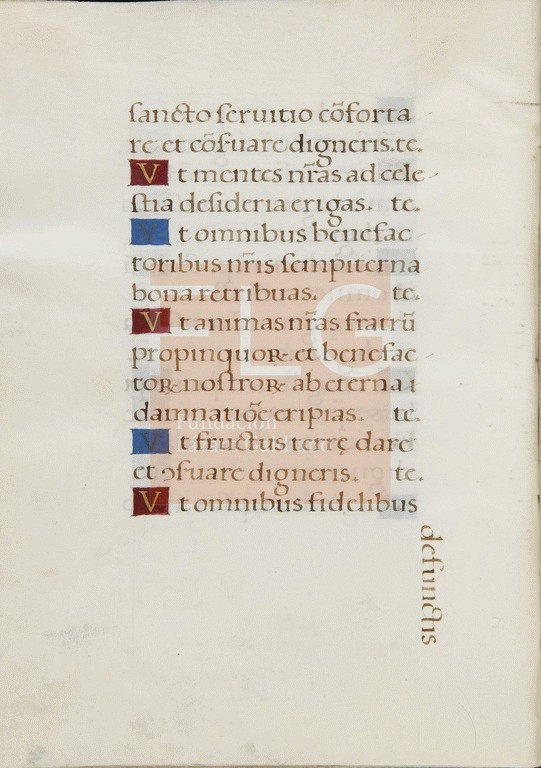 sancto seruitio cōforta
re et cōſuare digneris.te.
Vt mentes nr̄as ad cele
stia desideria erigas. te.
Vt omnibus benefac
toribus nr̄is sempiterna
bona retribuas. te.
Vt animas nr̄as fratrū
propinquoꝝ et benefac
toꝝ nostroꝝ ab eterna i
damnatiōe eripias. te.
Vt fructus terrę dare
et ↄſuare digneris. te.
Vt omnibus fidelibus
defunctis
FLG
Fundación